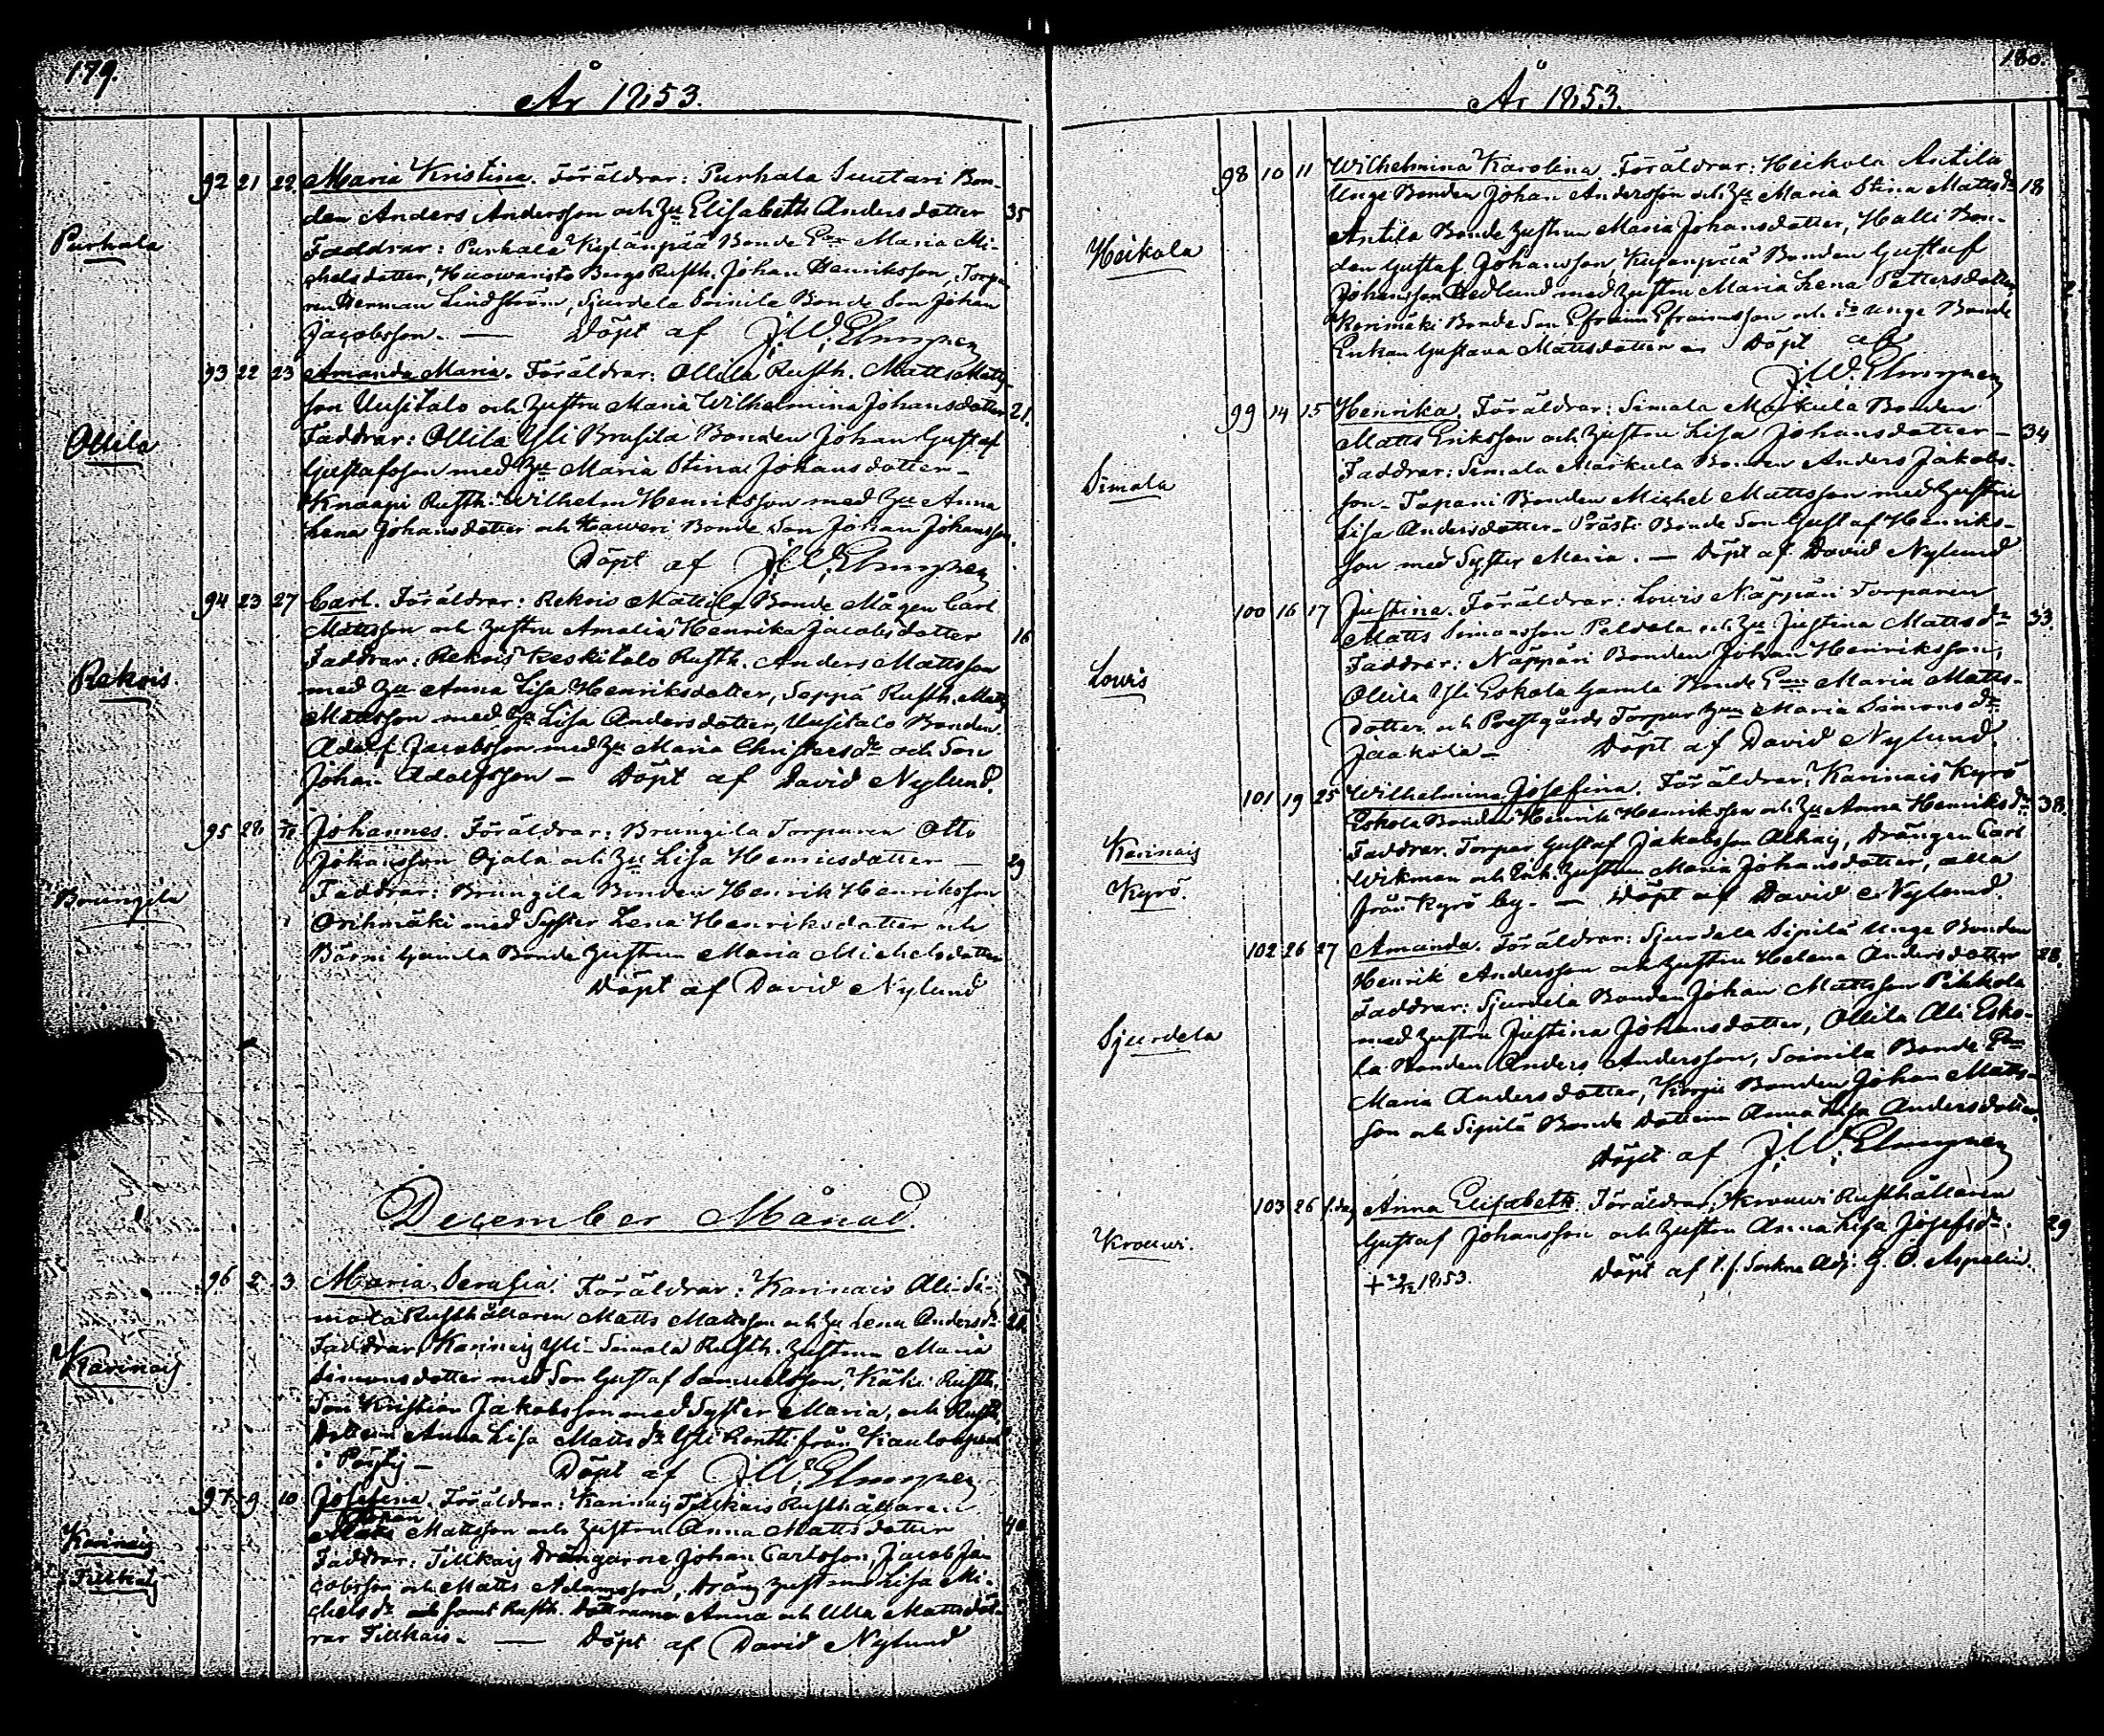 179.
År 1853.
Purhala
92 21 22 Maria Kristina. Föräldrar: Purhala Suutari Bon-
den Anders Andersson och Hu Elisabeth Anders dotter 35
Faddrar: Purhala Kylänpää Bonde Maria Mi-
chels dotter, Huowaristo Bergs Rusth. Johan Henriksson, Torpa-
ren Herman Lindström, Sjurdela Soinila Bonde Son Johan
Jacobsson. — Döpt af J. W. Elmgren
Ollila
93 22 23 Amanda Maria. Föräldrar: Ollila Rusth. Matts Matts-
son Uusitalo och Hustru Maria Wilhelmina Johansdotter 21.
Faddrar: Ollila Yli Brusila Bonden Johan Gustaf
Gustafsson med Hu Maria Stina Johansdotter –
Knaapi Rusth. Wilhelm Henriksson med Hu Anna
Lena Johansdotter och Haweri Bonde Son Johan Johansson.
Döpt af J. W. Elmgren
Rekois.
94 23 27 Carl. Föräldrar: Rekois Mattila Bonde Mågen Carl
Mattsson och Hustru Amalia Henrika Jacobsdotter 16
Faddrar: Rekois Keskitalo Rusth. Anders Mattsson
med Hu Anna Lisa Henriksdotter, Seppä Rusth. Matts
Mattsson med Hu Lisa Andersdotter, Uusitalo Bonden
Adolf Jacobsson med Hu Maria Christersdr och Son
Johan Adolfsson – Döpt af David Nylund.
Brungila
95 28 Johannes. Föräldrar: Brungila Torparen Otto
Johansson Ojala och Hu Lisa Henricsdotter — 29
Faddrar: Brungila Bonden Henrik Henriksson
Orihmäki med Syster Lena Henriksdotter och
Bärni Gamla Bonde Hustrun Maria Michelsdotter
Döpt af David Nylund
December Månad.
Karinaij
96 2 3 Maria Serafia. Föräldrar: Karinais Ali-Si-
mola Rusthållaren Matts Mattsson och Hu Lena Andersdr
Faddrar: Karinaij Yli-Simola Rusth. Hustrun Maria
Simonsdotter med Son Gustaf Samuelsson, Käki Rusth.
Son Kristian Jakobsson med Syster Maria, och Rusth.
Dottern Anna Lisa Mattsdr Yli Rontti från
i Pöytij – Döpt af J. W. Elmgren
Karinaij
Tillkaij
97 9 10 Josefina. Föräldrar: Karinaij Tillkais Rusthållaren
Johan
Mattsson och Hustru Anna Mattsdotter 40.
Faddrar: Tillkaij Drängarne Johan Carlsson, Jacob Ja-
cobsson och Matts Adamsson, Dräng Hustrun Lisa Mi-
chelsdr samt Rusth. Döttrarna Anna och Ulla Mattsdöt-
rar Tillkais. — Döpt af David Nylund
180.
År 1853.
Heikola
98 10 11 Wilhelmina Karolina. Föräldrar: Heikola Antila
Unge Bonden Johan Andersson och Hu Maria Stina Mattsdr 18
Antila Bonde Hustrun Maria Johansdotter, Halli Bon-
den Gustaf Johansson, Bonden Gustaf
Johansson Hedlund med Hustru Maria Lena Pettersdotter,
Korimäki Bonde Son Efraim Efraimsson och do unge Bonde
Enkan Gustava Mattsdotter Döpt af
J. W. Elmgren
Simala
99 14 15 Henrika. Föräldrar: Simala Markula Bonden
Matts Eriksson och Hustru Lisa Johansdotter – 34
Faddrar: Simala Markula Bonden Anders Jakobs-
son – Tapani Bonden Michel Mattsson med Hustru
Lisa Andersdotter – Prästi Bonde Son Gustaf Henriks-
son med Syster Maria. — Döpt af David Nylund
Louis
100 16 17 Justina. Föräldrar: Louis Näppäri Torparen
Matts Simonsson Peldola och Hu Justina Mattsdr 33.
Faddrar: Näppäri Bonden Johan Henriksson,
Ollila Yli Eskola Gamla Bonde Maria Matts-
dotter och Prestgårds Torpar Hun Maria Simonsdr
Jaakola – Döpt af David Nylund.
Karinais
Kyrö.
101 19 25 Wilhelmina Josefina. Föräldrar: Karinais Kyrö
Eskola Bonden Henrik Henriksson och Hu Anna Henriksdr 38.
Faddrar. Torpar Gustaf Jakobsson Alhaij, Drängen Carl
Wikman och Enk. Hustrun Maria Johansdotter, alla
från Kyrö by. — Döpt af David Nylund.
Sjurdela
102 26 27 Amanda. Föräldrar: Sjurdala Sipilä Unge Bonden
Henrik Andersson och Hustru Helena Andersdotter 28.
Faddrar: Sjurdela Bonden Johan Mattsson Pihkola
med Hustru Justina Johansdotter, Ollila Ali Esko-
la Bonden Anders Andersson, Soinila Bonde
Maria Andersdotter, Korpi Bonden Johan Matts-
son och Sipilä Bonde Dottern Anna Lisa Andersdotter.
Döpt af J. W. Elmgren
Krouwi.
103 26 s. dag Anna Elisabeth. Föräldrar: Krouwi Rusthållaren
Gustaf Johansson och Hustru Anna Lisa Josefsdr. 29
+ 29/12 1853. Döpt af V. f. Sockne Adj. G. O. Aspelin.